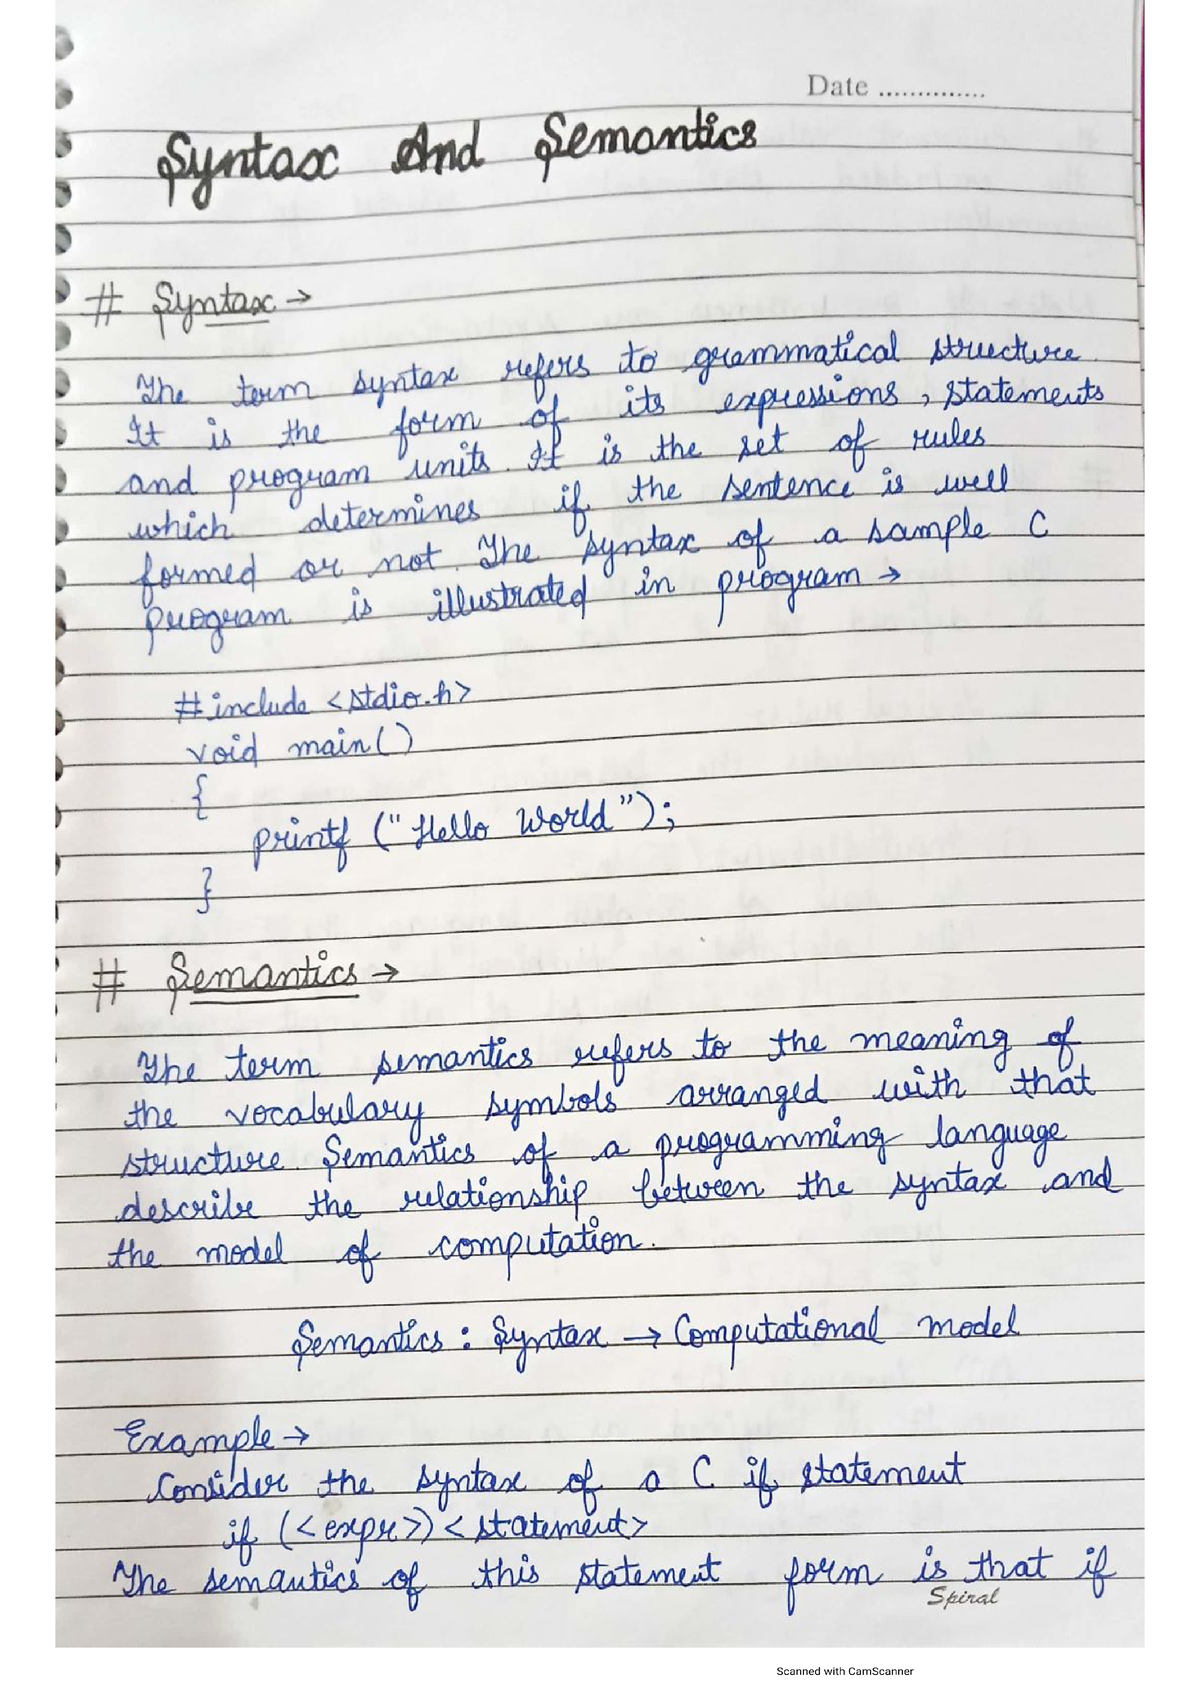 Date ..............
Syntax And Semantics
# Syntax →
The term syntax refers to grammatical structure.
It is the form of its expressions, statements
and program units. It is the set of rules
which determines if the sentence is well
formed or not. The syntax of a sample C
program is illustrated in program →
#include <stdio.h>
void main()
{
printf ("Hello World");
}
# Semantics →
The term semantics refers to the meaning of
the vocabulary symbols arranged with that
structure. Semantics of a programming language
describe the relationship between the syntax and
the model of computation.
Semantics : Syntax → Computational model
Example →
Consider the syntax of a C if statement
if (<expr>) <statement>
The semantics of this statement form is that if
Spiral
Scanned with CamScanner